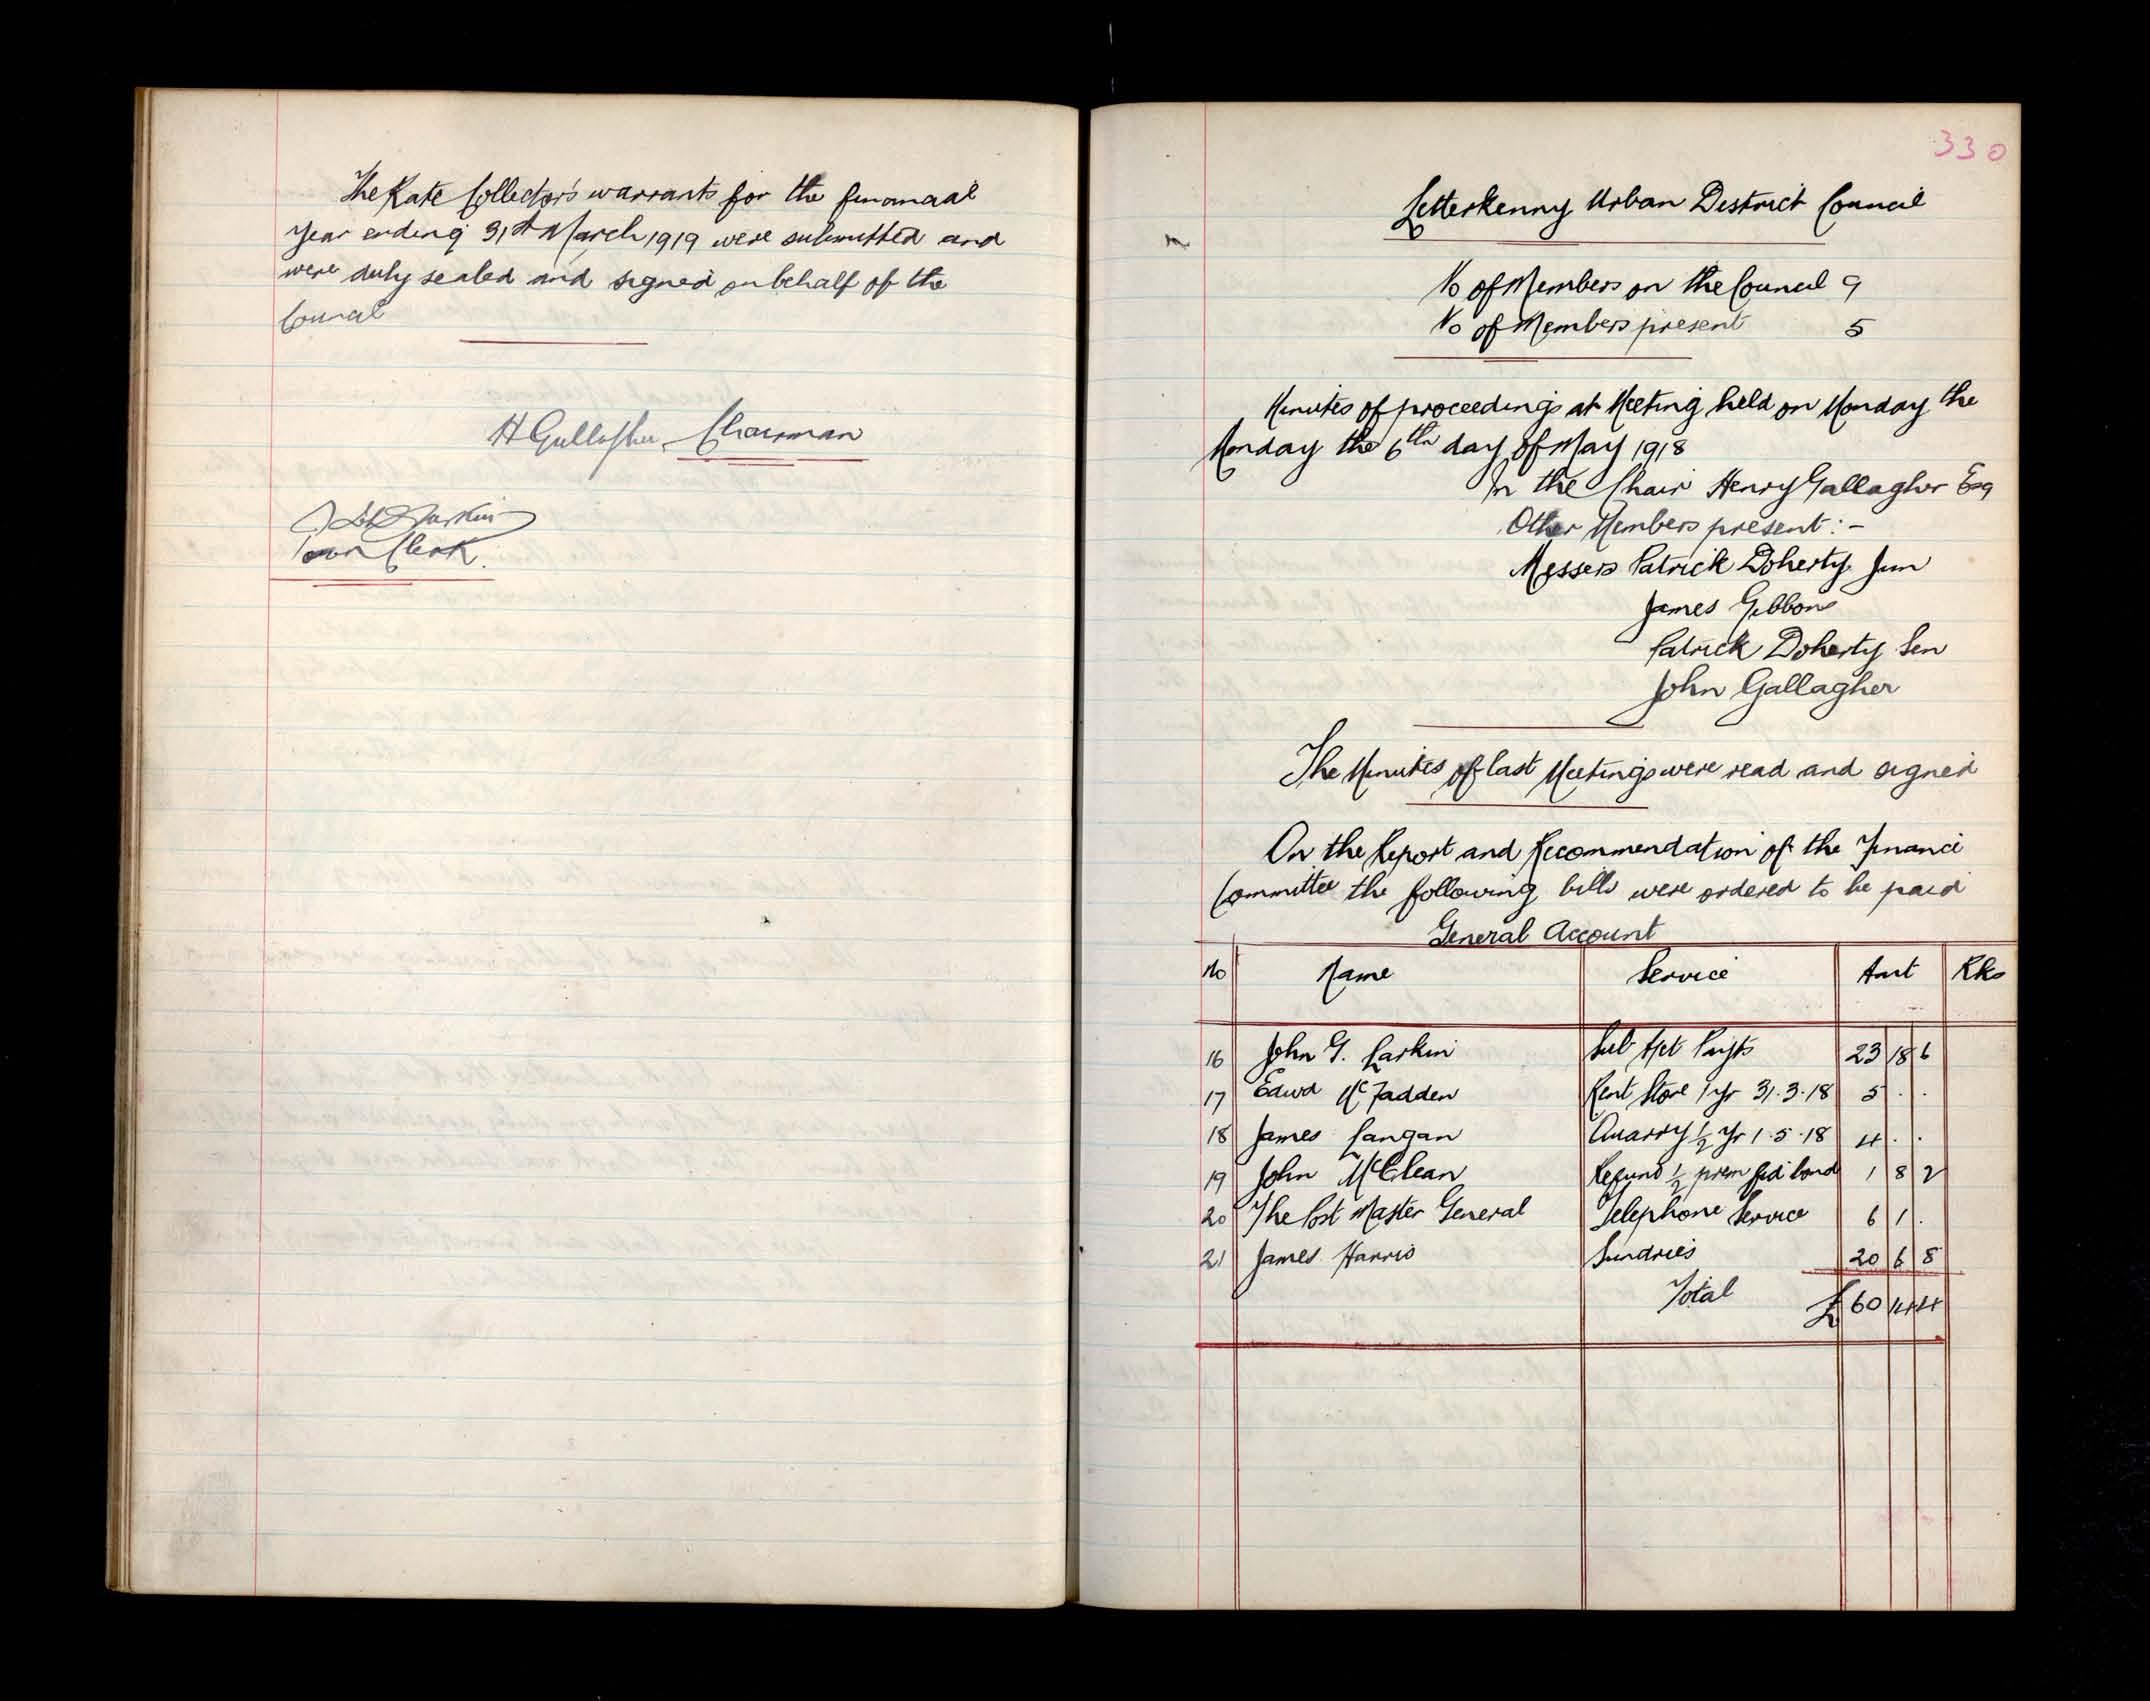 The Rate Collector's warrants for the financial
Year ending 31st March 1919 were submitted and
were duly sealed and signed on behalf of the
Council
H Gallagher Chairman
Larkin
Town Clerk.
330
Letterkenny Urban District Council
No of Members on the Council 9
No of Members present 5
Minutes of proceedings at Meeting held on Monday the
Monday the 6th day of May 1918
In the Chair Henry Gallagher Esq
Other Members present :-
Messers Patrick Doherty Jun
James Gibbons
Patrick Doherty Sen
John Gallagher
The Minutes of last Meetings were read and signed
On the Report and Recommendation of the Finance
Committee the following bills were ordered to be paid
General Account
No Name Service Amt Rks
16 John G. Larkin Sub Act Payts 23 18 6
17 Edwd McFadden Rent Store 1 yr 31.3.18 5 . .
18 James Langan Quarry 1/2 Yr 1.5.18 4 . .
19 John McClean Refund 1/2 prem fid bond 1 8 2
20 The Post Master General Telephone Service 6 1 .
21 James Harris Sundries 20 6 8
Total £ 60 14 4